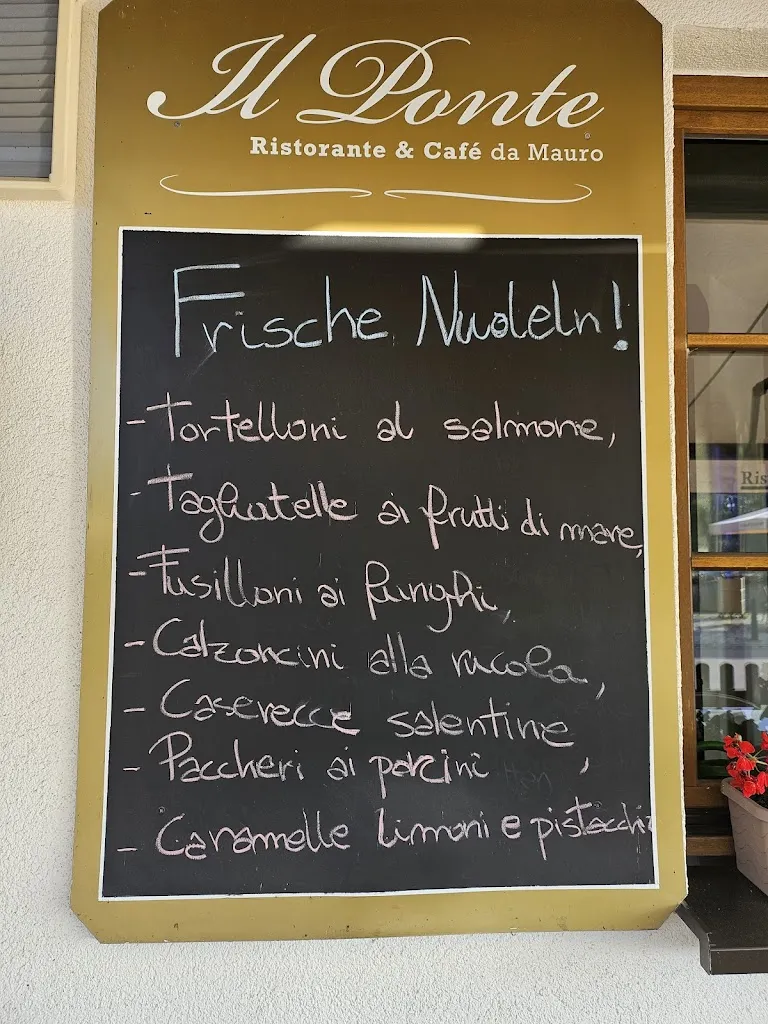 Il Ponte
Ristorante & Café da Mauro
Frische Nudeln!
- Tortelloni al salmone,
- Tagliatelle ai frutti di mare,
- Fusilloni ai funghi,
- Calzoncini alla rucola,
- Caserecce salentine,
- Paccheri ai porcini
- Caramelle limoni e pistacchi
Ris